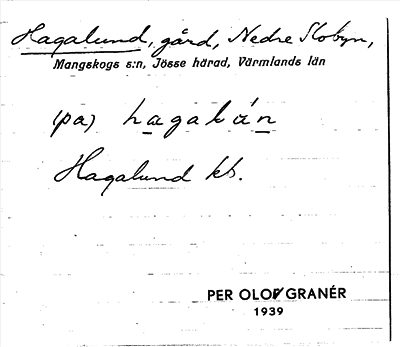 Hagalund, gård, Nedre Slobyn,
Mangskogs s:n, Jösse härad, Värmlands län
(pa) hagalán
Hagalund kb.
PER OLOF GRANÉR
1939